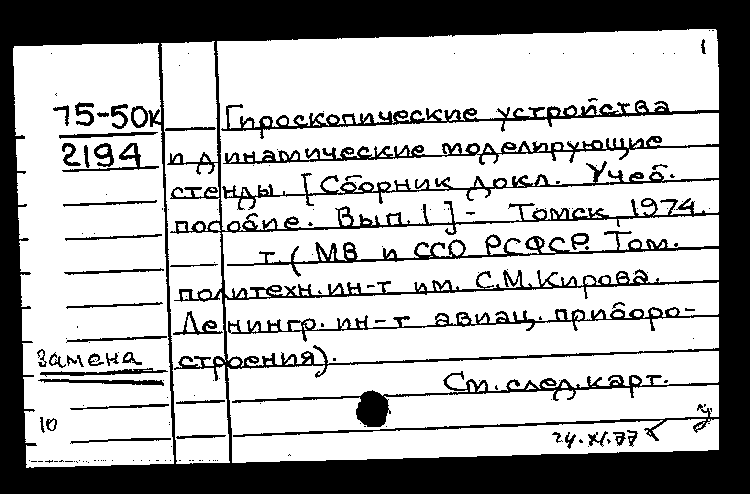 1
75-50к Гироскопические устройства
2194 и динамические моделирующие
стенды. [Сборник докл. Учеб.
пособие. Вып. 1] - Томск, 1974.
т. (МВ и ССО РСФСР. Том.
политехн. ин-т им. С.М. Кирова.
Ленингр. ин-т авиац. приборо-
Замена строения).
См. след. карт.
10
24.XI.77